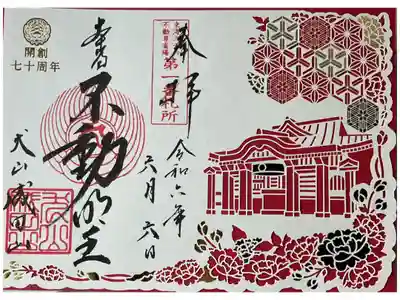 奉拝
令和六年
六月六日
不動
第一番札所
本尊
不動明王
犬山成田山
開創
七十周年